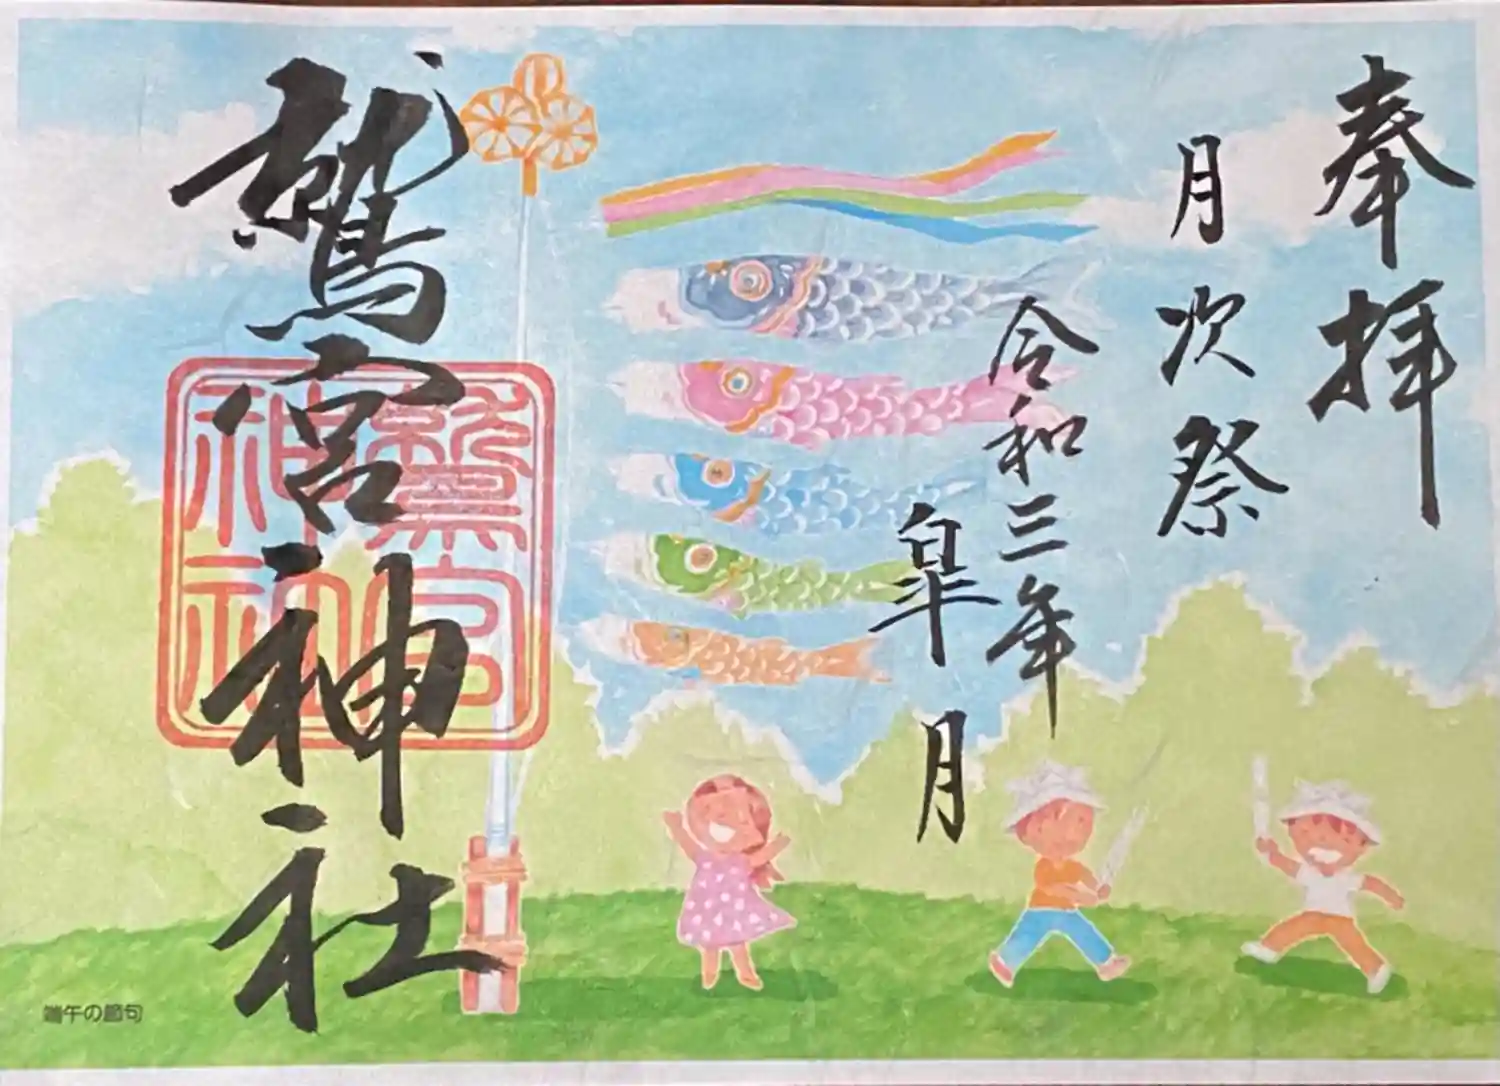 奉拝
月次祭
令和三年
皐月
鷲宮神社
鷲宮
神社
端午の節句